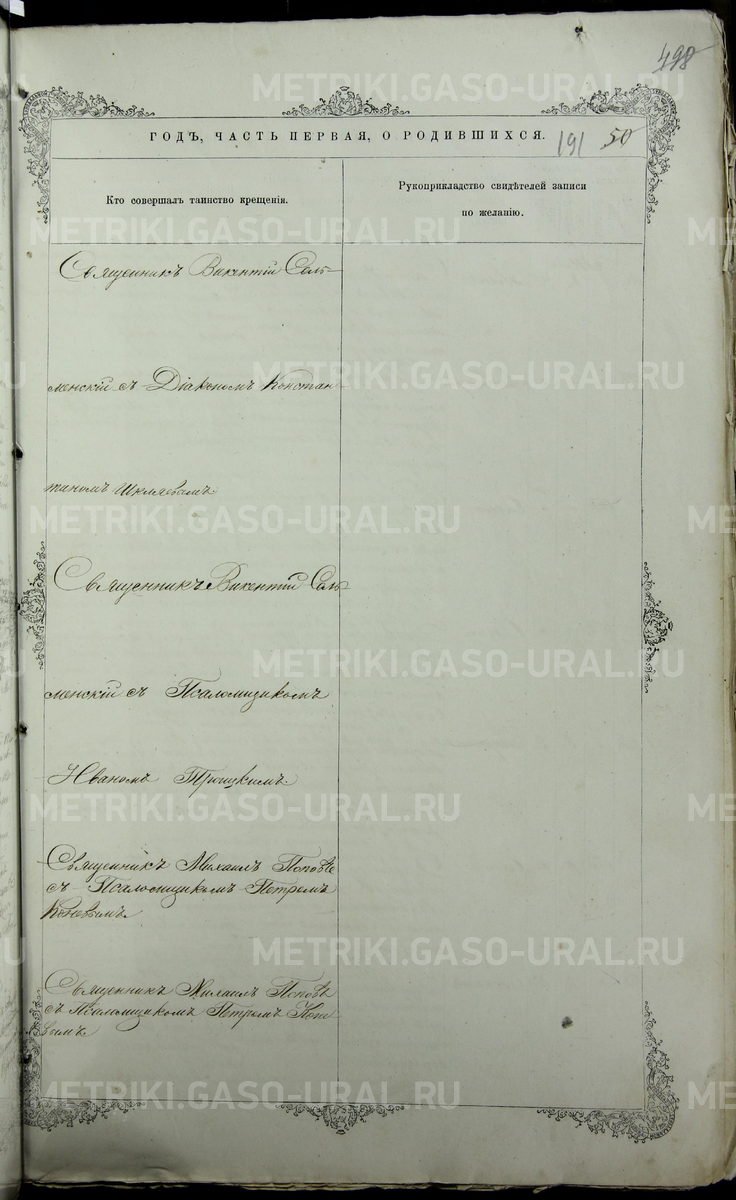 498
ГОДЪ, ЧАСТЬ ПЕРВАЯ, О РОДИВШИХСЯ.
191 50
Кто совершалъ таинство крещенія.
Рукоприкладство свидѣтелей записи
по желанію.
Священникъ Викентій Саль-
менскій съ Діакономъ Констан-
тиномъ Шиляевымъ.
Священникъ Викентій Саль-
менскій съ Псаломщикомъ
Иваномъ Троицкимъ.
Священникъ Михаилъ Поповъ
съ Псаломщикомъ Петромъ
Коневымъ.
Священникъ Михаилъ Поповъ
съ Псаломщикомъ Петромъ Коне
вымъ.
METRIKI.GASO-URAL.RU